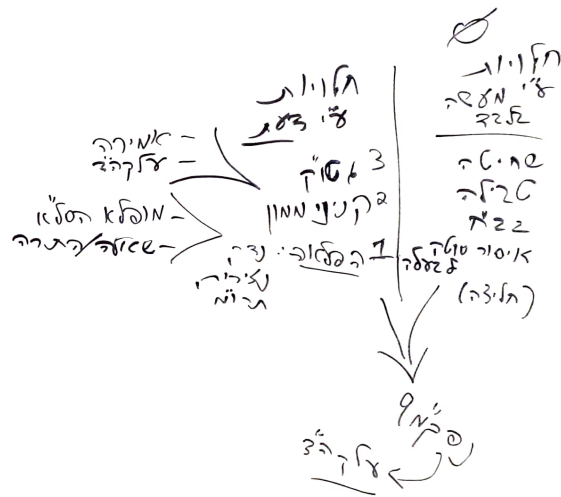 חלויות
ע"י מעשה
בלבד
שחיטה
טבילה
בב"ח
איסור סוטה
לבעלה
(חליצה)
חלויות
ע"י דעת
3 גטו"ק
2 קניני ממון
1 הפלאה: נדר,
נזירות,
תרו"מ
– אמירה
– עלקה"ד
– מופלא הסל"א
– שאלה/התרה
פק"מ 9
עלקה"ד